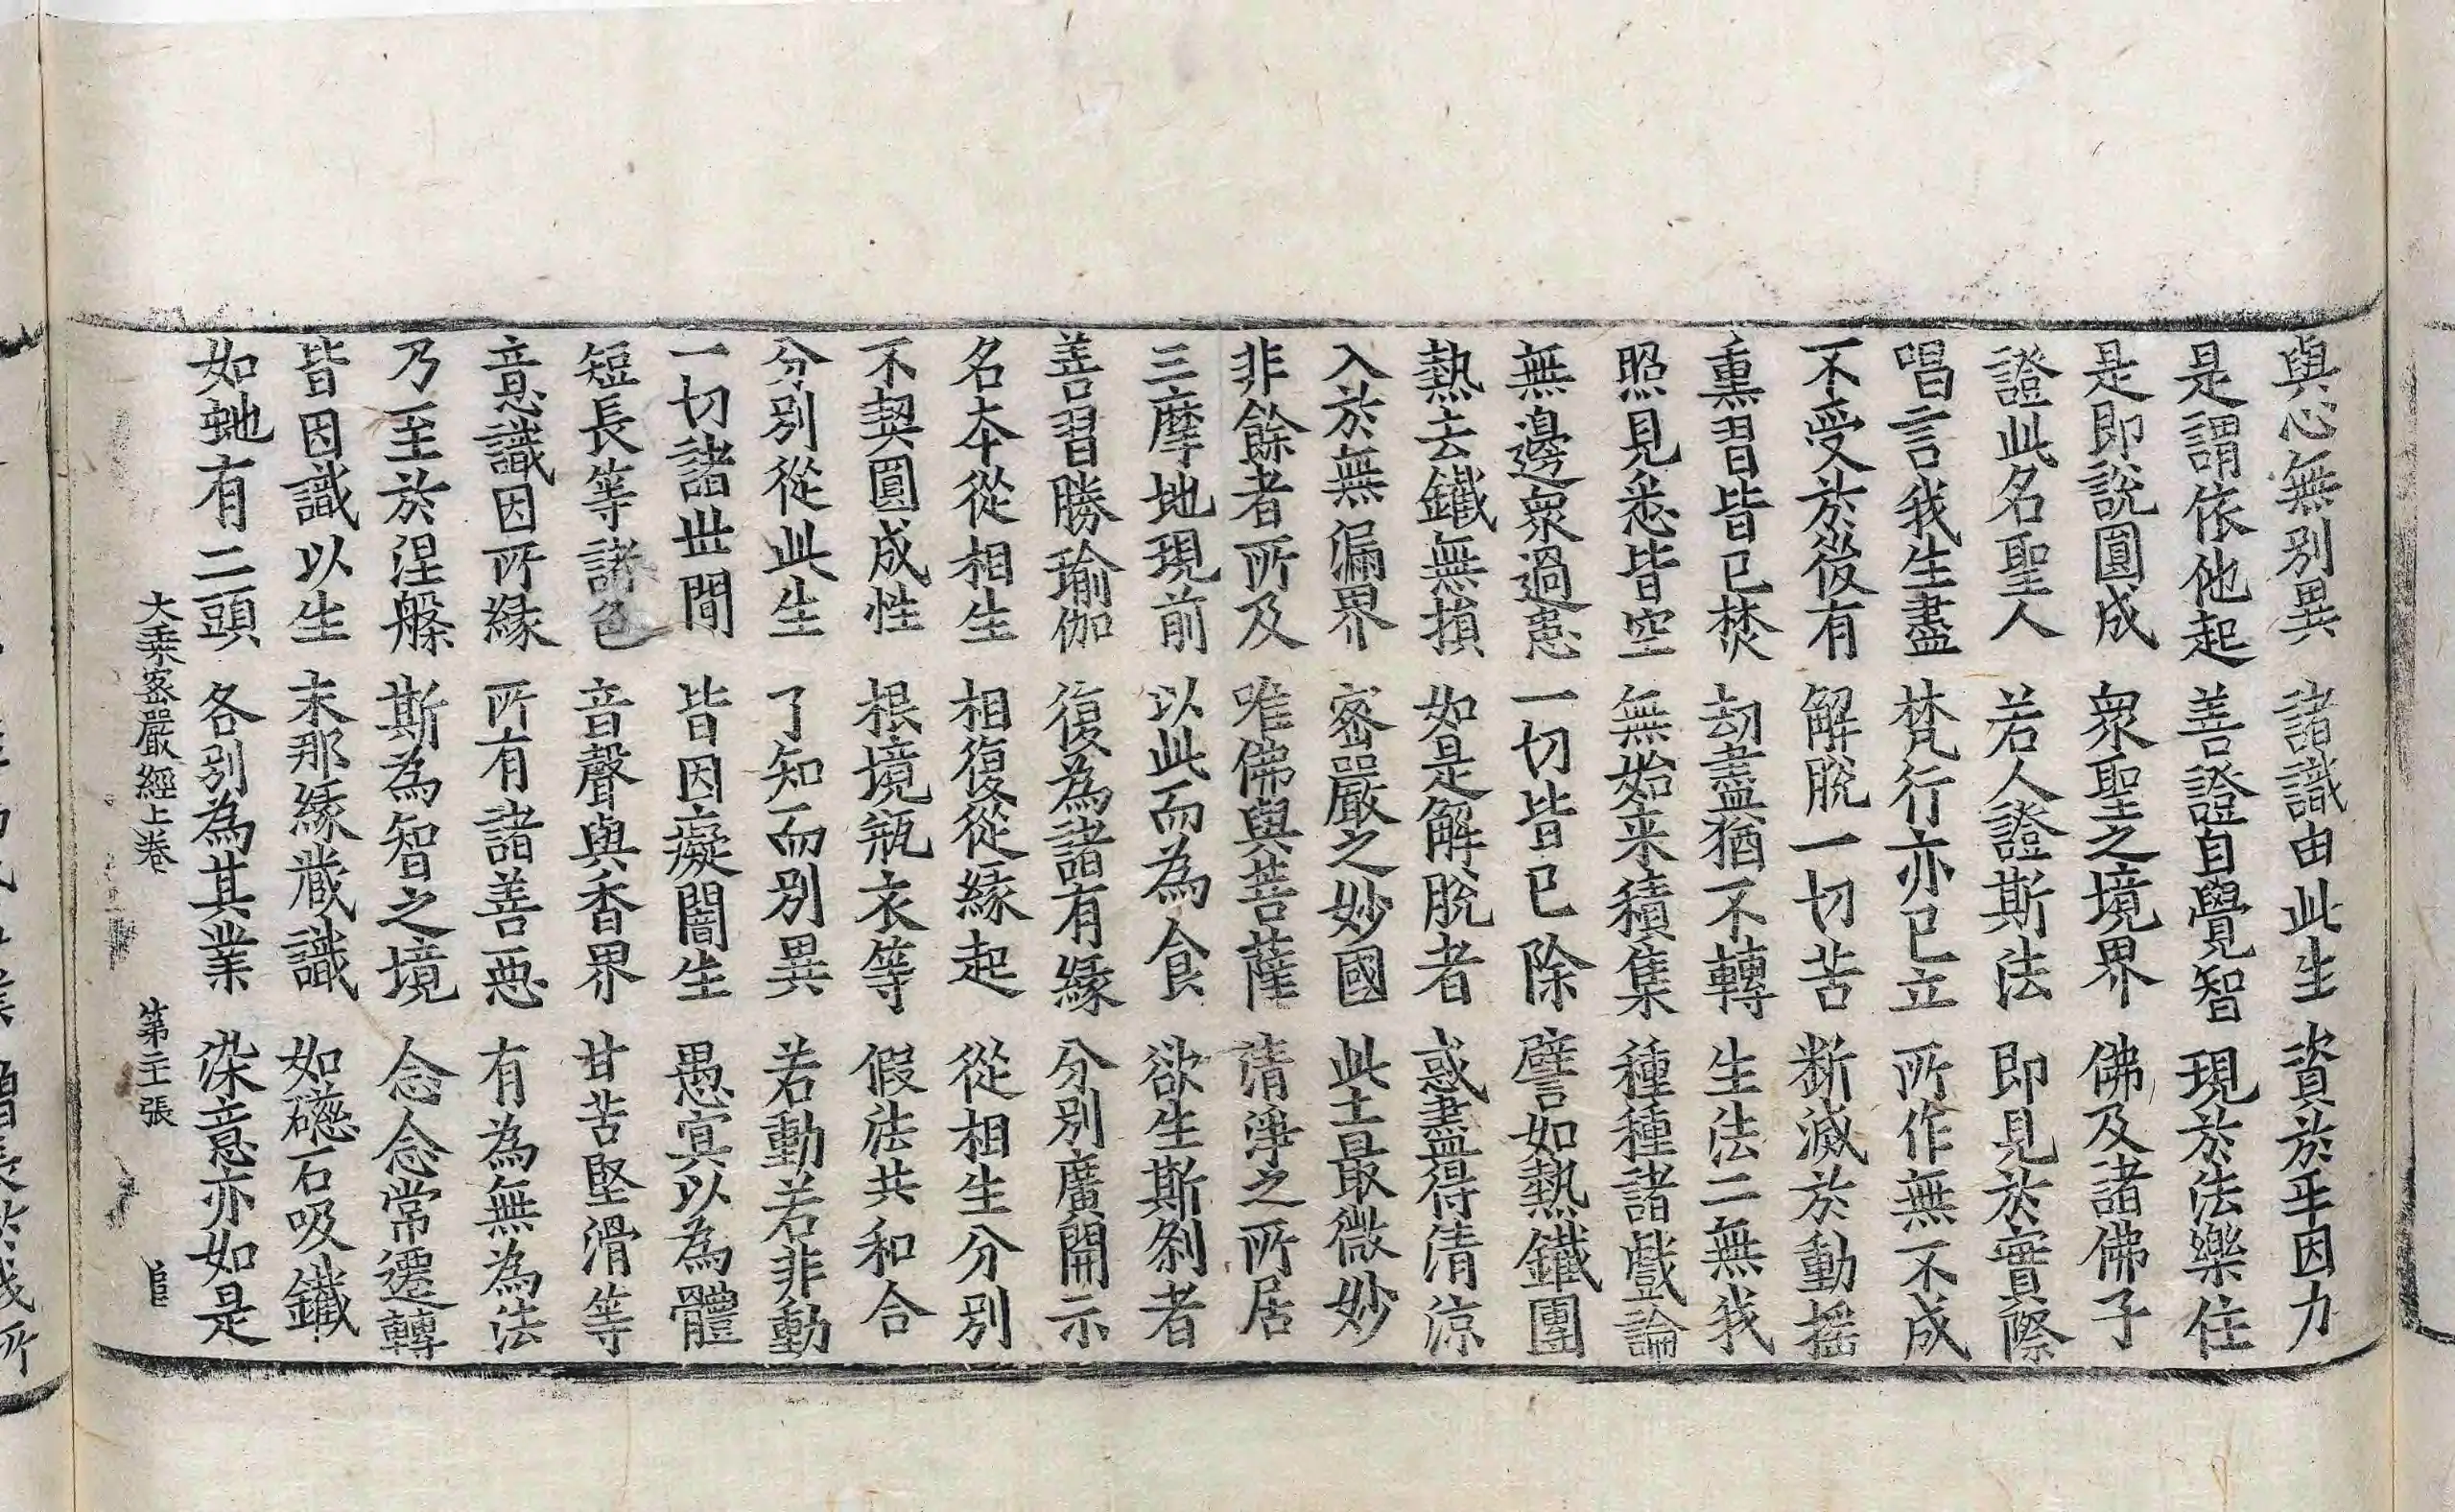 與心無別異　諸識由此生　資於年因力
是謂依他起　善證自覺智　現於法樂住
是即說圓成　衆聖之境界　佛及諸佛子
證此名聖人　若人證斯法　即見於實際
唱言我生盡　梵行亦已立　所作無不成
不受於後有　解脫一切苦　断滅於動搖
熏習皆已焚　劫盡猶不轉　生法二無我
照見悉皆空　無始来積集　種種諸戲論
無邊衆過患　一切皆已除　譬如熱鐵團
熱去鐵無損　如是解脫者　惑盡得清涼
入於無漏界　密嚴之妙國　此土最微妙
非餘者所及　唯佛與菩薩　清淨之所居
三摩地現前　以此而為食　欲生斯刹者
善習勝瑜伽　復為諸有縁　分別廣開示
名本從相生　相復從縁起　從相生分別
不契圓成性　根境瓶衣等　假法共和合
分別從此生　了知而別異　若動若非動
一切諸世間　皆因癡闇生　愚冥以為體
短長等諸色　音聲與香界　甘苦堅滑等
意識因所縁　所有諸善惡　有為無為法
乃至於涅槃　斯為智之境　念念常遷轉
皆因識以生　末那縁蔵識　如礠石吸鐵
如虵有二頭　各別為其業　染意亦如是
大乗密嚴經上卷　第二張